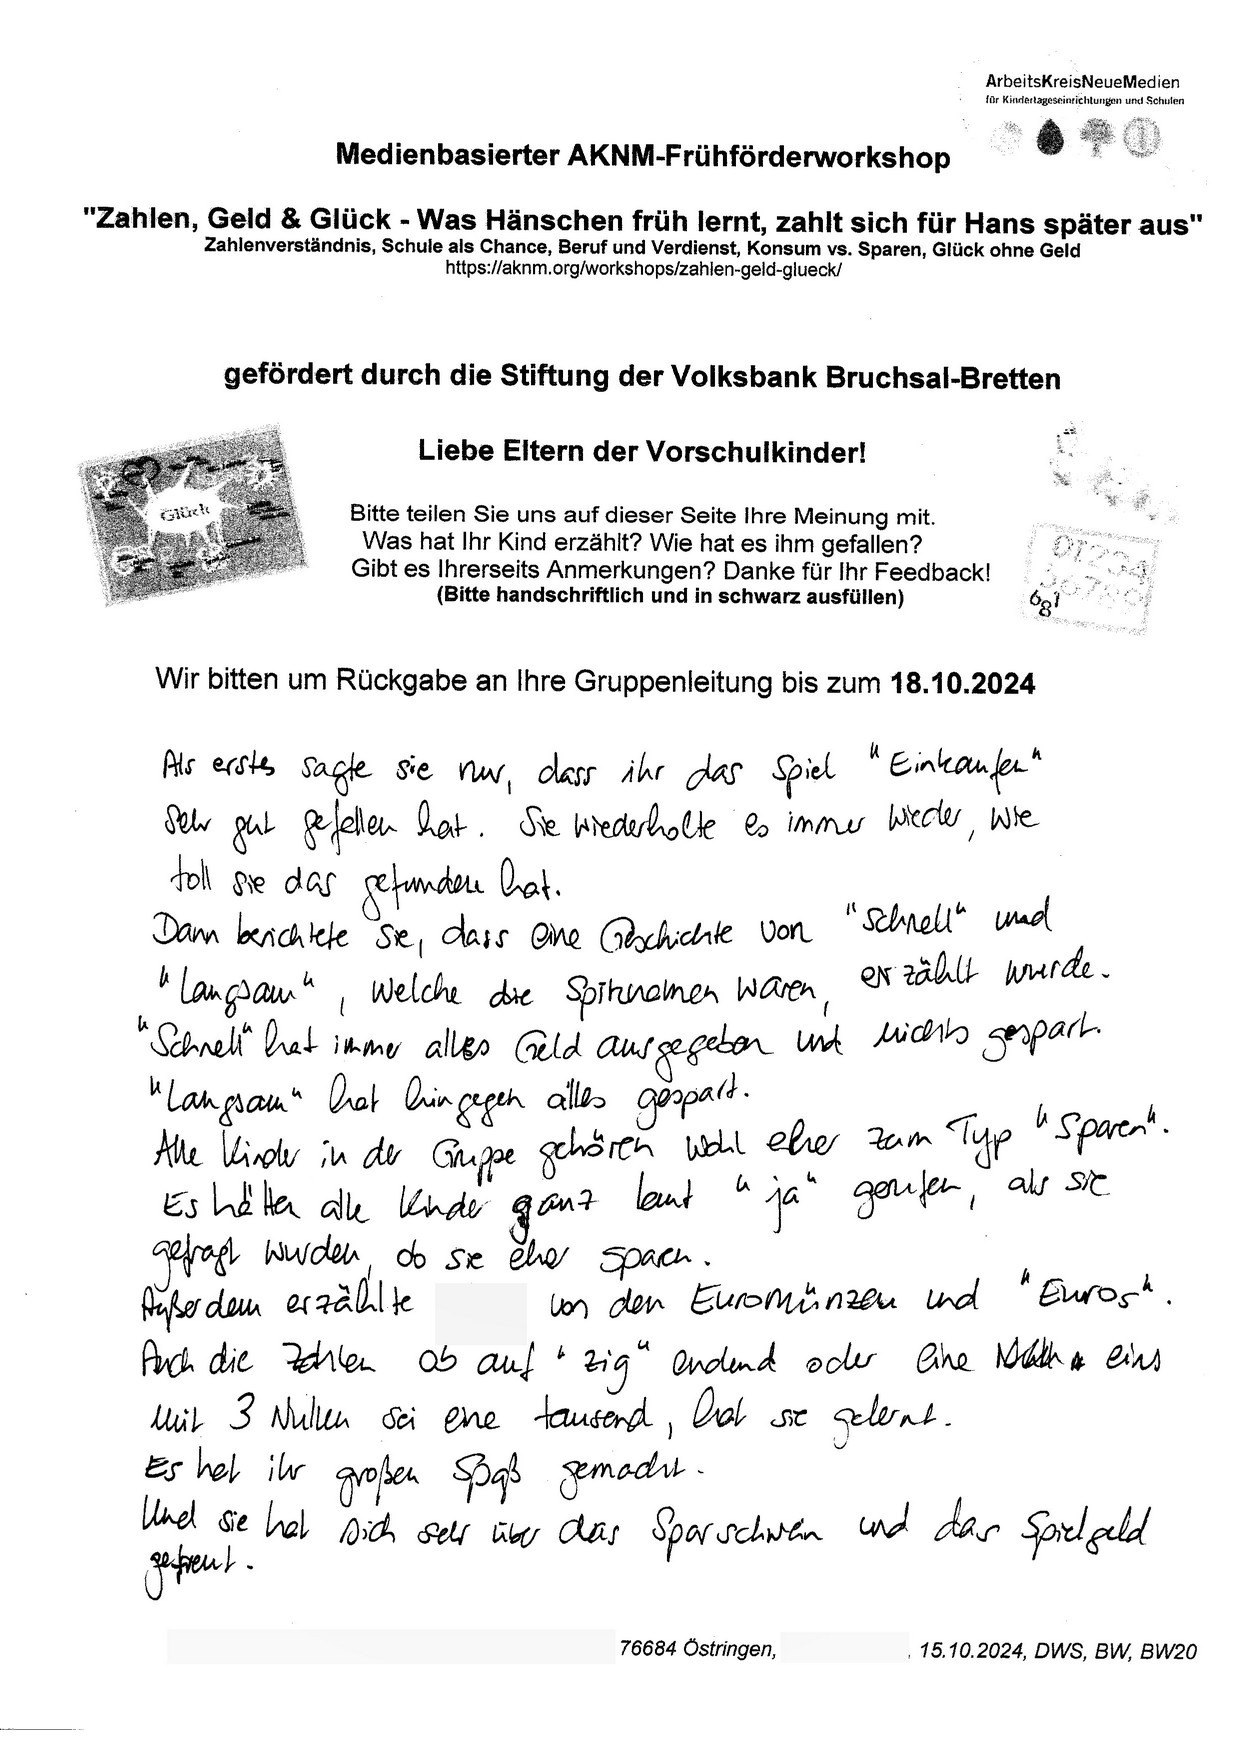 ArbeitsKreisNeueMedien
für Kindertageseinrichtungen und Schulen
Medienbasierter AKNM-Frühförderworkshop
"Zahlen, Geld & Glück - Was Hänschen früh lernt, zahlt sich für Hans später aus"
Zahlenverständnis, Schule als Chance, Beruf und Verdienst, Konsum vs. Sparen, Glück ohne Geld
https://aknm.org/workshops/zahlen-geld-glueck/
gefördert durch die Stiftung der Volksbank Bruchsal-Bretten
Liebe Eltern der Vorschulkinder!
Glück
Bitte teilen Sie uns auf dieser Seite Ihre Meinung mit.
Was hat Ihr Kind erzählt? Wie hat es ihm gefallen?
Gibt es Ihrerseits Anmerkungen? Danke für Ihr Feedback!
(Bitte handschriftlich und in schwarz ausfüllen)
01234
56789
681
Wir bitten um Rückgabe an Ihre Gruppenleitung bis zum 18.10.2024
Als erstes sagte sie nur, dass ihr das Spiel "Einkaufen"
sehr gut gefallen hat. Sie wiederholte es immer wieder, wie
toll sie das gefunden hat.
Dann berichtete sie, dass eine Geschichte von "Schnell" und
"Langsam", welche die Spitznamen waren, erzählt wurde.
"Schnell" hat immer alles Geld ausgegeben und nichts gespart.
"Langsam" hat hingegen alles gespart.
Alle Kinder in der Gruppe gehören wohl eher zum Typ "Sparen".
Es hätten alle Kinder ganz laut "ja" gerufen, als sie
gefragt wurden, ob sie eher sparen.
Außerdem erzählte von den Euromünzen und "Euros".
Auch die Zahlen ob auf "zig" endend oder eine eins
mit 3 Nullen sei eine tausend, hat sie gelernt.
Es hat ihr großen Spaß gemacht.
Und sie hat sich sehr über das Sparschwein und das Spielgeld
gefreut.
76684 Östringen, , 15.10.2024, DWS, BW, BW20